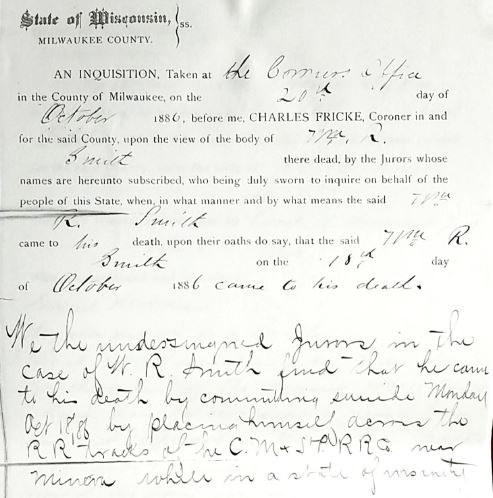 State of Wisconsin, } ss.
MILWAUKEE COUNTY.
AN INQUISITION, Taken at the Coroners Office
in the County of Milwaukee, on the 20th day of
October 1886, before me, CHARLES FRICKE, Coroner in and
for the said County, upon the view of the body of Wm. R.
Smith there dead, by the Jurors whose
names are hereunto subscribed, who being duly sworn to inquire on behalf of the
people of this State, when, in what manner and by what means the said Wm
R. Smith
came to his death, upon their oaths do say, that the said Wm R.
Smith on the 18th day
of October 1886 came to his death.
We the undersingned Jurors in the
case of W. R. Smith find that he came
to his death by commiting suicide Monday
Oct 18, 86 by placing himself across the
R R tracks of the C. M & St P R R Co. near
while in a state of insanity